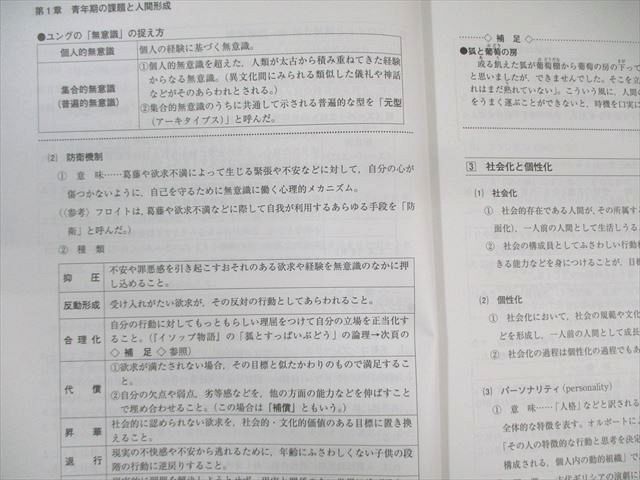 第1章 青年期の課題と人間形成
●ユングの「無意識」の捉え方
個人的無意識
個人の経験に基づく無意識。
集合的無意識
(普遍的無意識)
①個人的無意識を超えた,人類が太古から積み重ねてきた経験
からなる無意識。(異文化間にみられる類似した儀礼や神話
などがそのあらわれとされる。)
②集合的無意識のうちに共通して示される普遍的な型を「元型
(アーキタイプス)」と呼んだ。
(2) 防衛機制
① 意 味……葛藤や欲求不満によって生じる緊張や不安などに対して,自分の心が
傷つかないように,自己を守るために無意識に働く心理的メカニズム。
(《参考》フロイトは,葛藤や欲求不満などに際して自我が利用するあらゆる手段を「防
衛」と呼んだ。)
② 種 類
抑 圧
不安や罪悪感を引き起こすおそれのある欲求や経験を無意識のなかに押
し込めること。
反動形成
受け入れがたい欲求が,その反対の行動としてあらわれること。
合 理 化
自分の行動に対してもっともらしい理屈をつけて自分の立場を正当化す
ること。(『イソップ物語』の「狐とすっぱいぶどう」の論理→次頁の
◇ 補 足 ◇参照)
代 償
①欲求が満たされない場合,その目標と似たかわりのもので満足するこ
と。
②自分の欠点や弱点,劣等感などを,他の方面の能力などを伸ばすこと
で埋め合わせること。(この場合は「補償」ともいう。)
昇 華
社会的に認められない欲求を,社会的・文化的価値のある目標に置き換
えること。
退 行
現実の不快感や不安から逃れるために,年齢にふさわしくない子供の段
階の行動に逆戻りすること。
◇ 補 足 ◇
●狐と葡萄の房
或る飢えた狐が葡萄棚から葡萄の房の下って
と思いましたが,できませんでした。そこを立
れはまだ熟れていない」。こういう風に,人間の
をうまく運ぶことができないと,時機を口実に
3 社会化と個性化
(1) 社会化
① 社会的存在である人間が,その所属する
面化),一人前の人間として生活しうる。
② 社会の構成員としてふさわしい行動様
きる能力などを身につけることが,目標
(2) 個性化
① 社会化において,社会の規範や文化
どを形成し,一人前の人間として成長
② 社会化の過程は個性化の過程でもあ
(3) パーソナリティ(personality)
① 意 味……「人格」などと訳される
全体的な特徴を表す。オルポートに
「その人の特徴的な行動と思考を決定
構成される,個人内の動的組織」